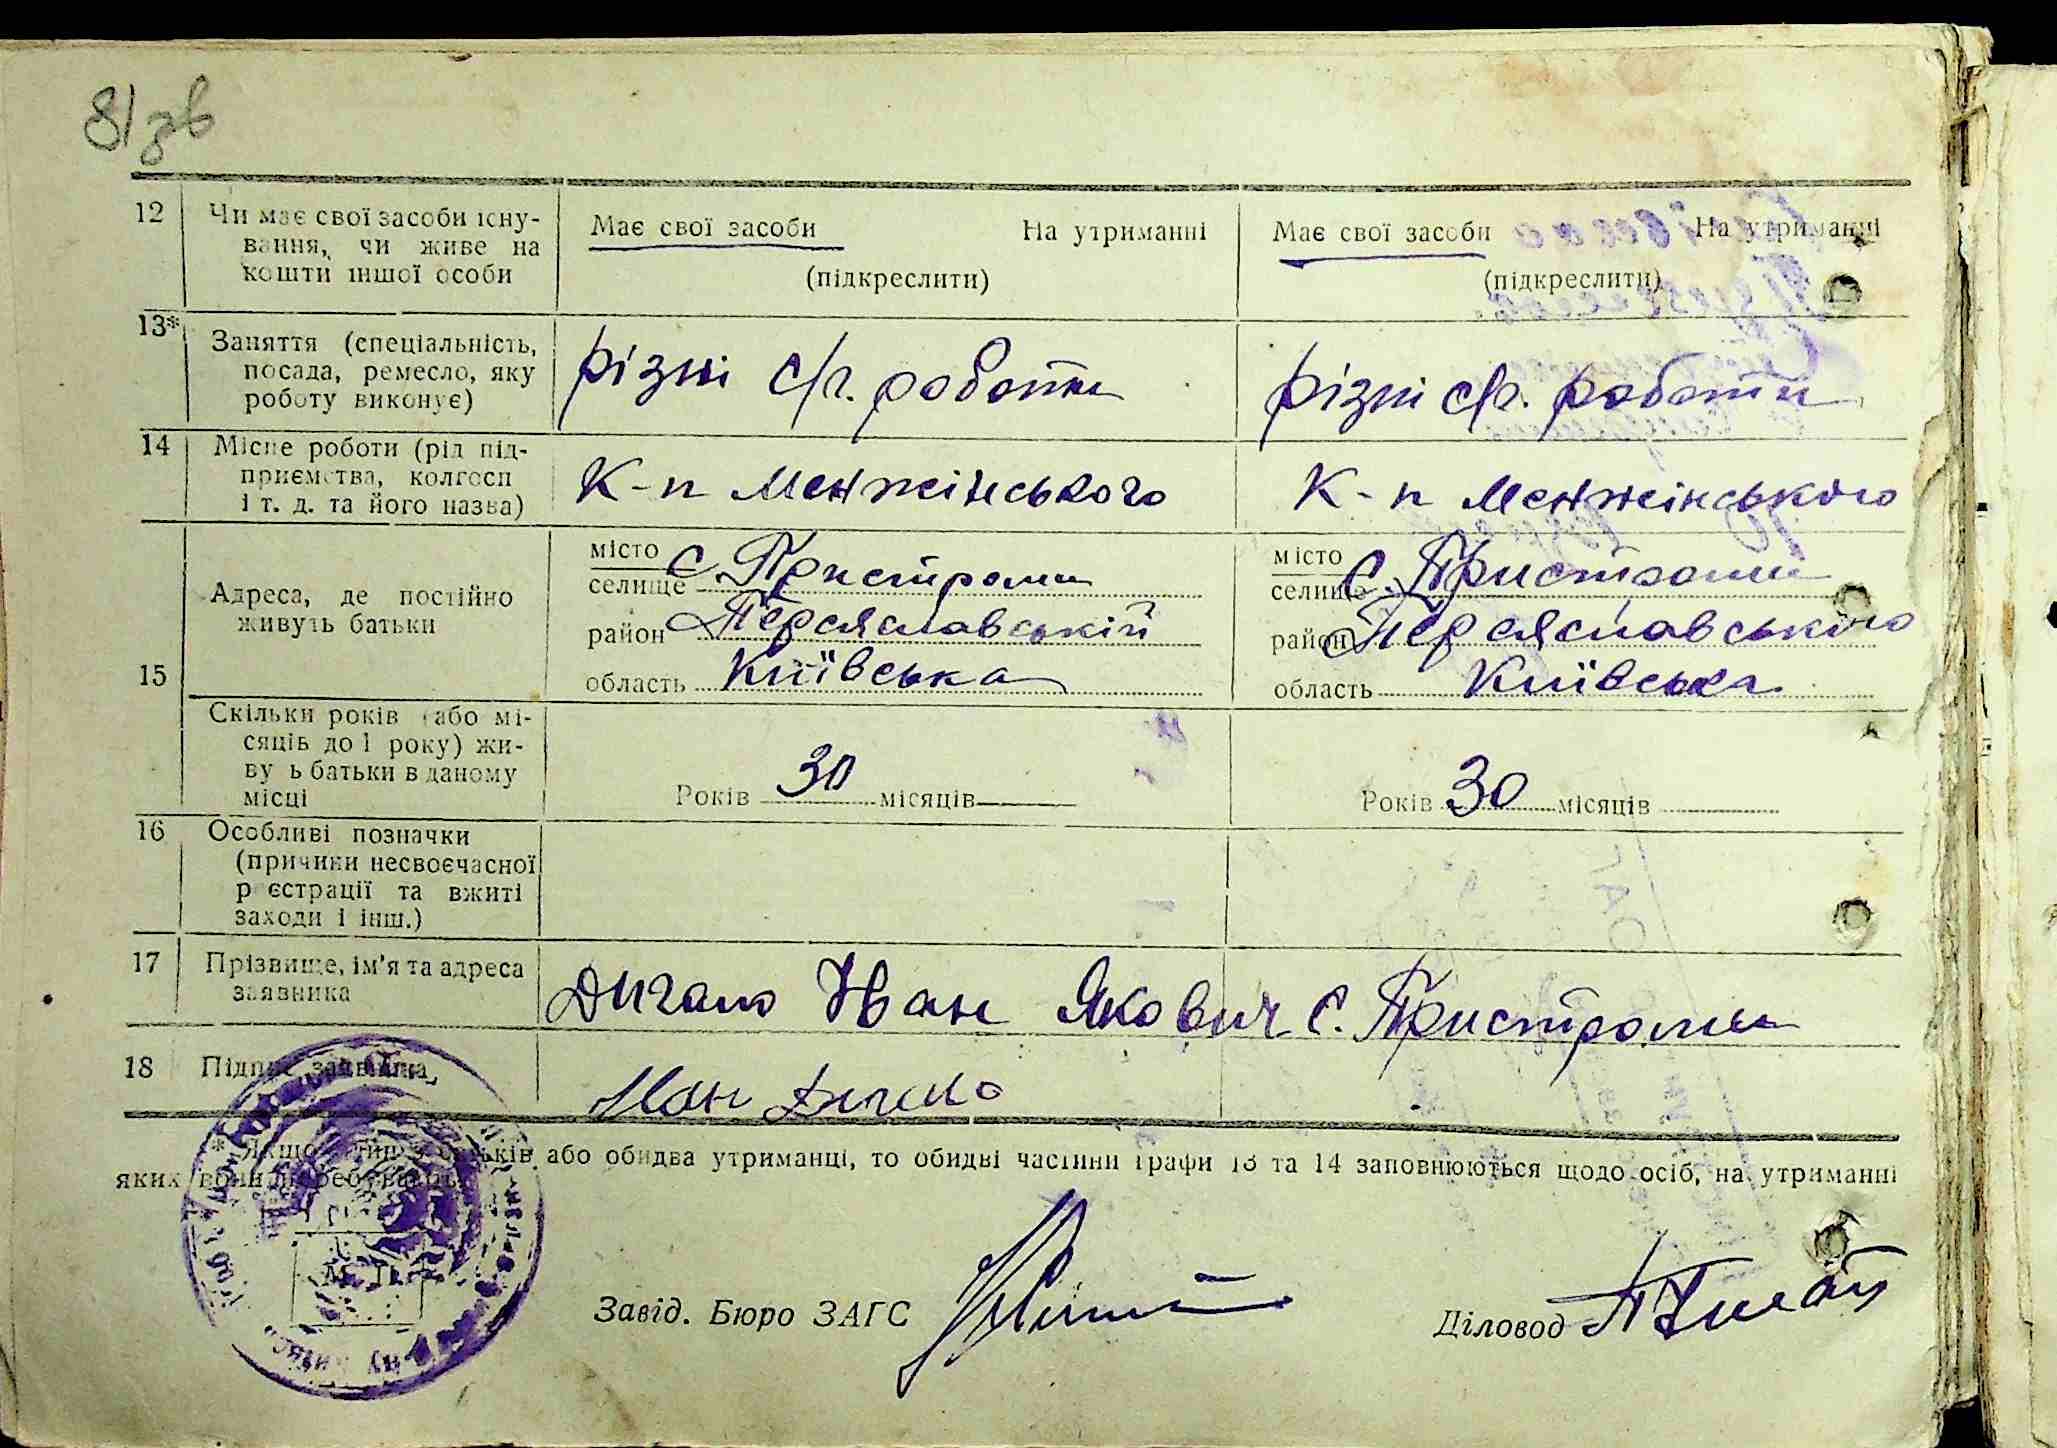 81 зв
12 Чи має свої засоби існу- Має свої засоби На утриманні Має свої засоби На утриманні
вання, чи живе на
кошти іншої особи (підкреслити) (підкреслити)
13* Заняття (спеціальність,
посада, ремесло, яку різні с/г. роботи різні с/г. роботи
роботу виконує)
14 Місце роботи (рід під-
приємства, колгосп К-п Менжінського К-п Менжінського
і т. д. та його назва)
місто місто
селище с. Пристроми селище с. Пристроми
Адреса, де постійно
живуть батьки район Переяславській район Переяславського
15 область Київська область Київська
Скільки років (або мі-
сяців до 1 року) жи-
вуть батьки в даному
місці Років 30 місяців Років 30 місяців
16 Особливі позначки
(причини несвоєчасної
реєстрації та вжиті
заходи і інш.)
17 Прізвище, ім'я та адреса
заявника Дигало Іван Якович с. Пристроми
18 Підпис заявника Іван Дигало
* Якщо один з батьків або обидва утриманці, то обидві частини графи 13 та 14 заповнюються щодо осіб, на утриманні
яких вони перебувають.
М. П.
Завід. Бюро ЗАГС
Діловод